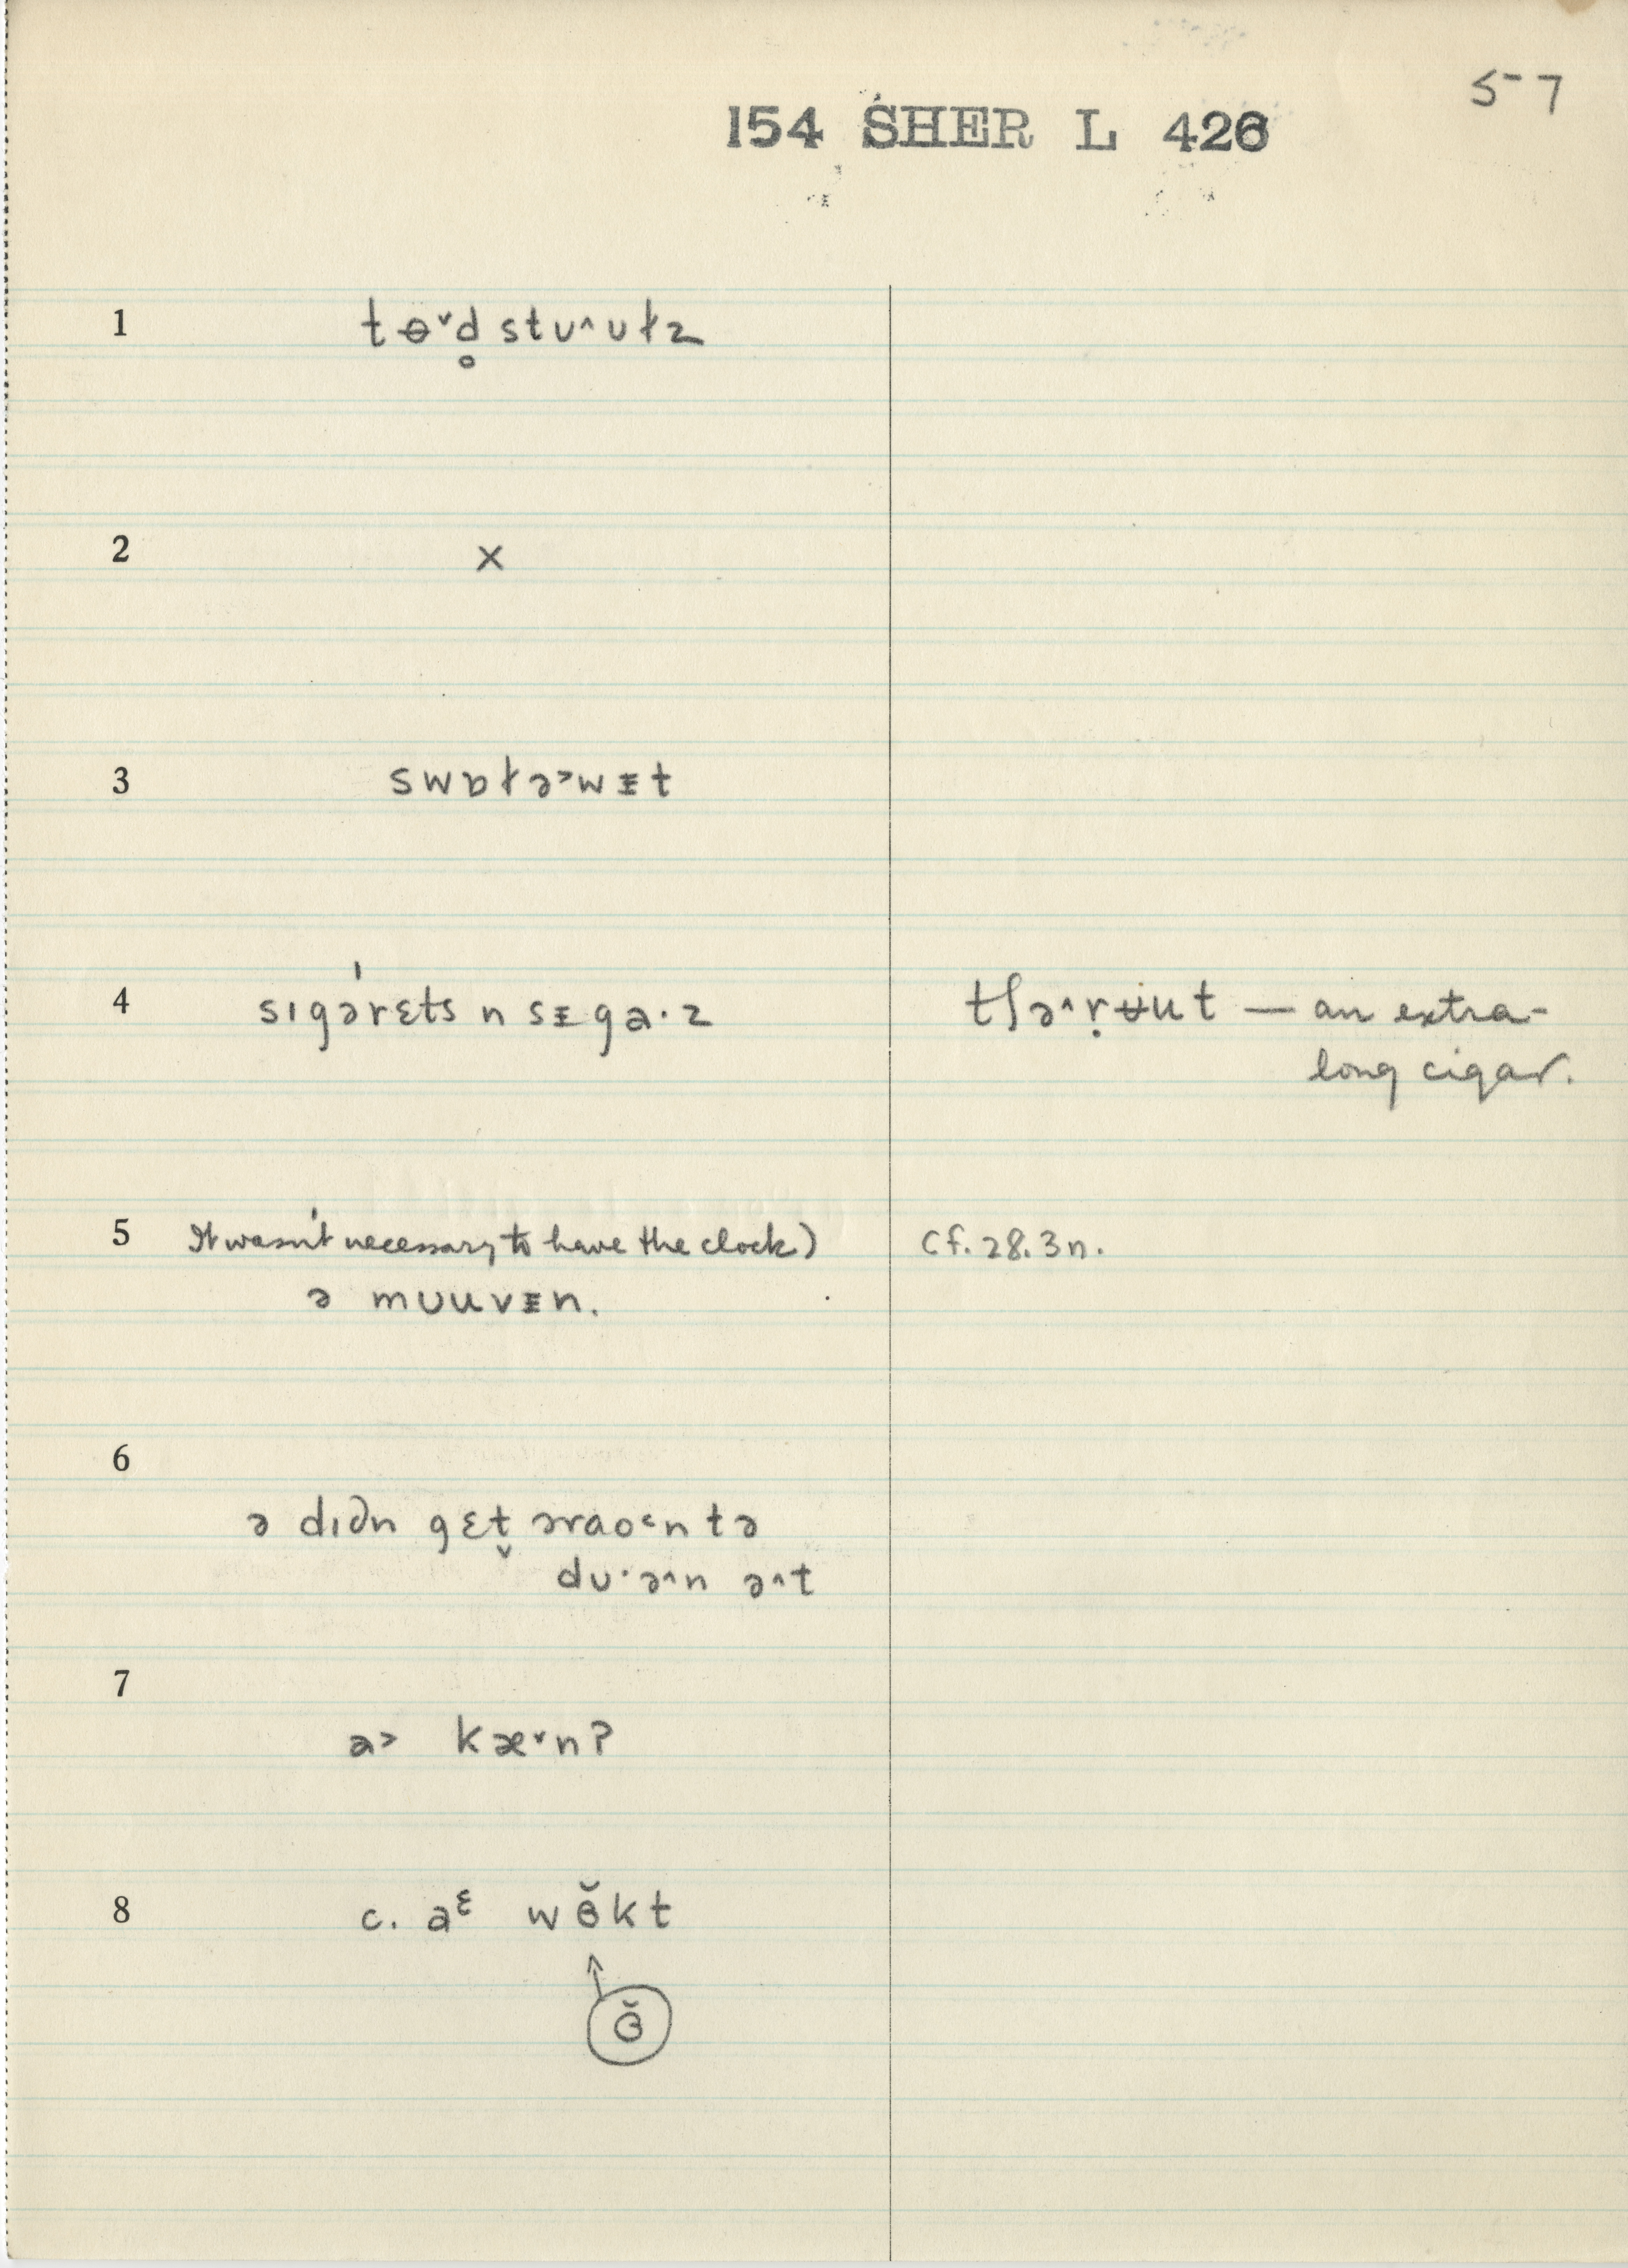 57
154 SHER L 426
1 tɵ˅d̥ stʊ^ʊɫz
2 x
3 swɒɫə˃wᵻt
4 sɪgə́rɛts n sᵻga·z
tʃə^ṛʉut — an extra-
long cigar.
5 It wasn't necessary to have the clock)
cf. 28.3n.
ə mʊuvᵻn.
6
ə dɪdn gɛt̬ əraʊ˂n tə
dʊ·ə^n ə^t
7
a˃ kæ˅n?
8 c. aᵋ wɞ̆kt
ɞ̆